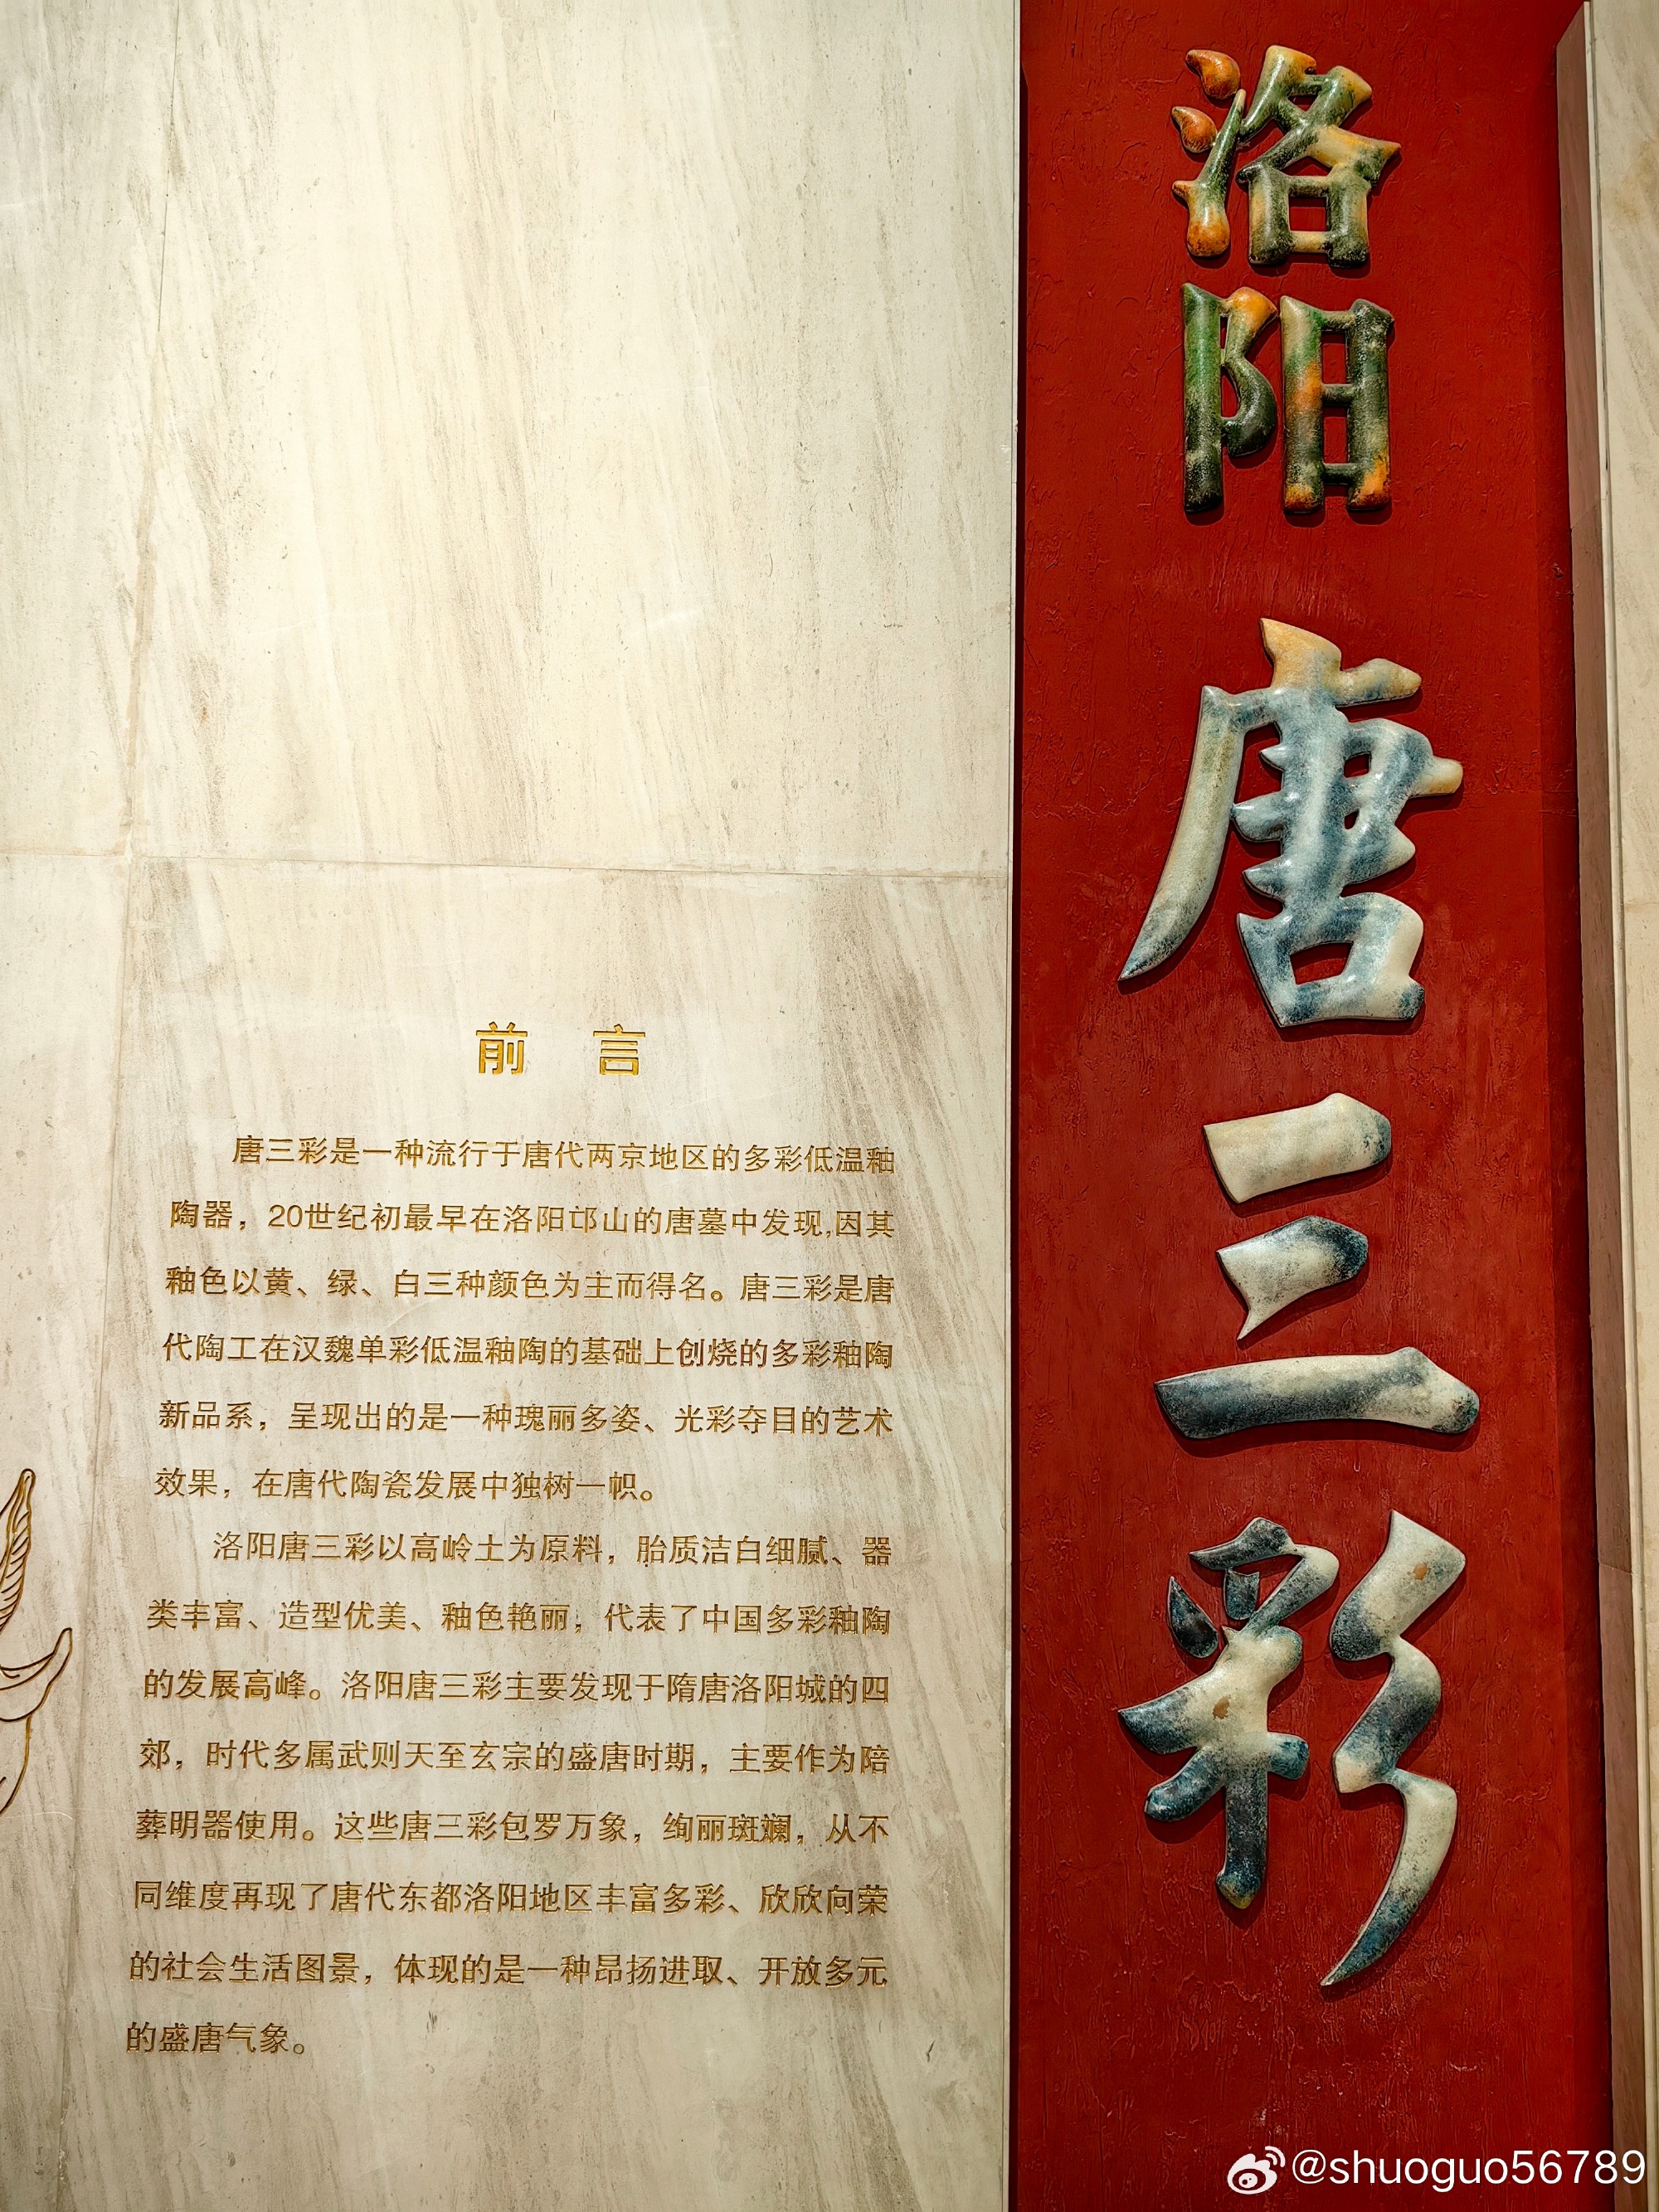 洛阳
唐三彩
前言
唐三彩是一种流行于唐代两京地区的多彩低温釉
陶器，20世纪初最早在洛阳邙山的唐墓中发现,因其
釉色以黄、绿、白三种颜色为主而得名。唐三彩是唐
代陶工在汉魏单彩低温釉陶的基础上创烧的多彩釉陶
新品系，呈现出的是一种瑰丽多姿、光彩夺目的艺术
效果，在唐代陶瓷发展中独树一帜。
洛阳唐三彩以高岭土为原料，胎质洁白细腻、器
类丰富、造型优美、釉色艳丽，代表了中国多彩釉陶
的发展高峰。洛阳唐三彩主要发现于隋唐洛阳城的四
郊，时代多属武则天至玄宗的盛唐时期，主要作为陪
葬明器使用。这些唐三彩包罗万象，绚丽斑斓，从不
同维度再现了唐代东都洛阳地区丰富多彩、欣欣向荣
的社会生活图景，体现的是一种昂扬进取、开放多元
的盛唐气象。
@shuoguo56789